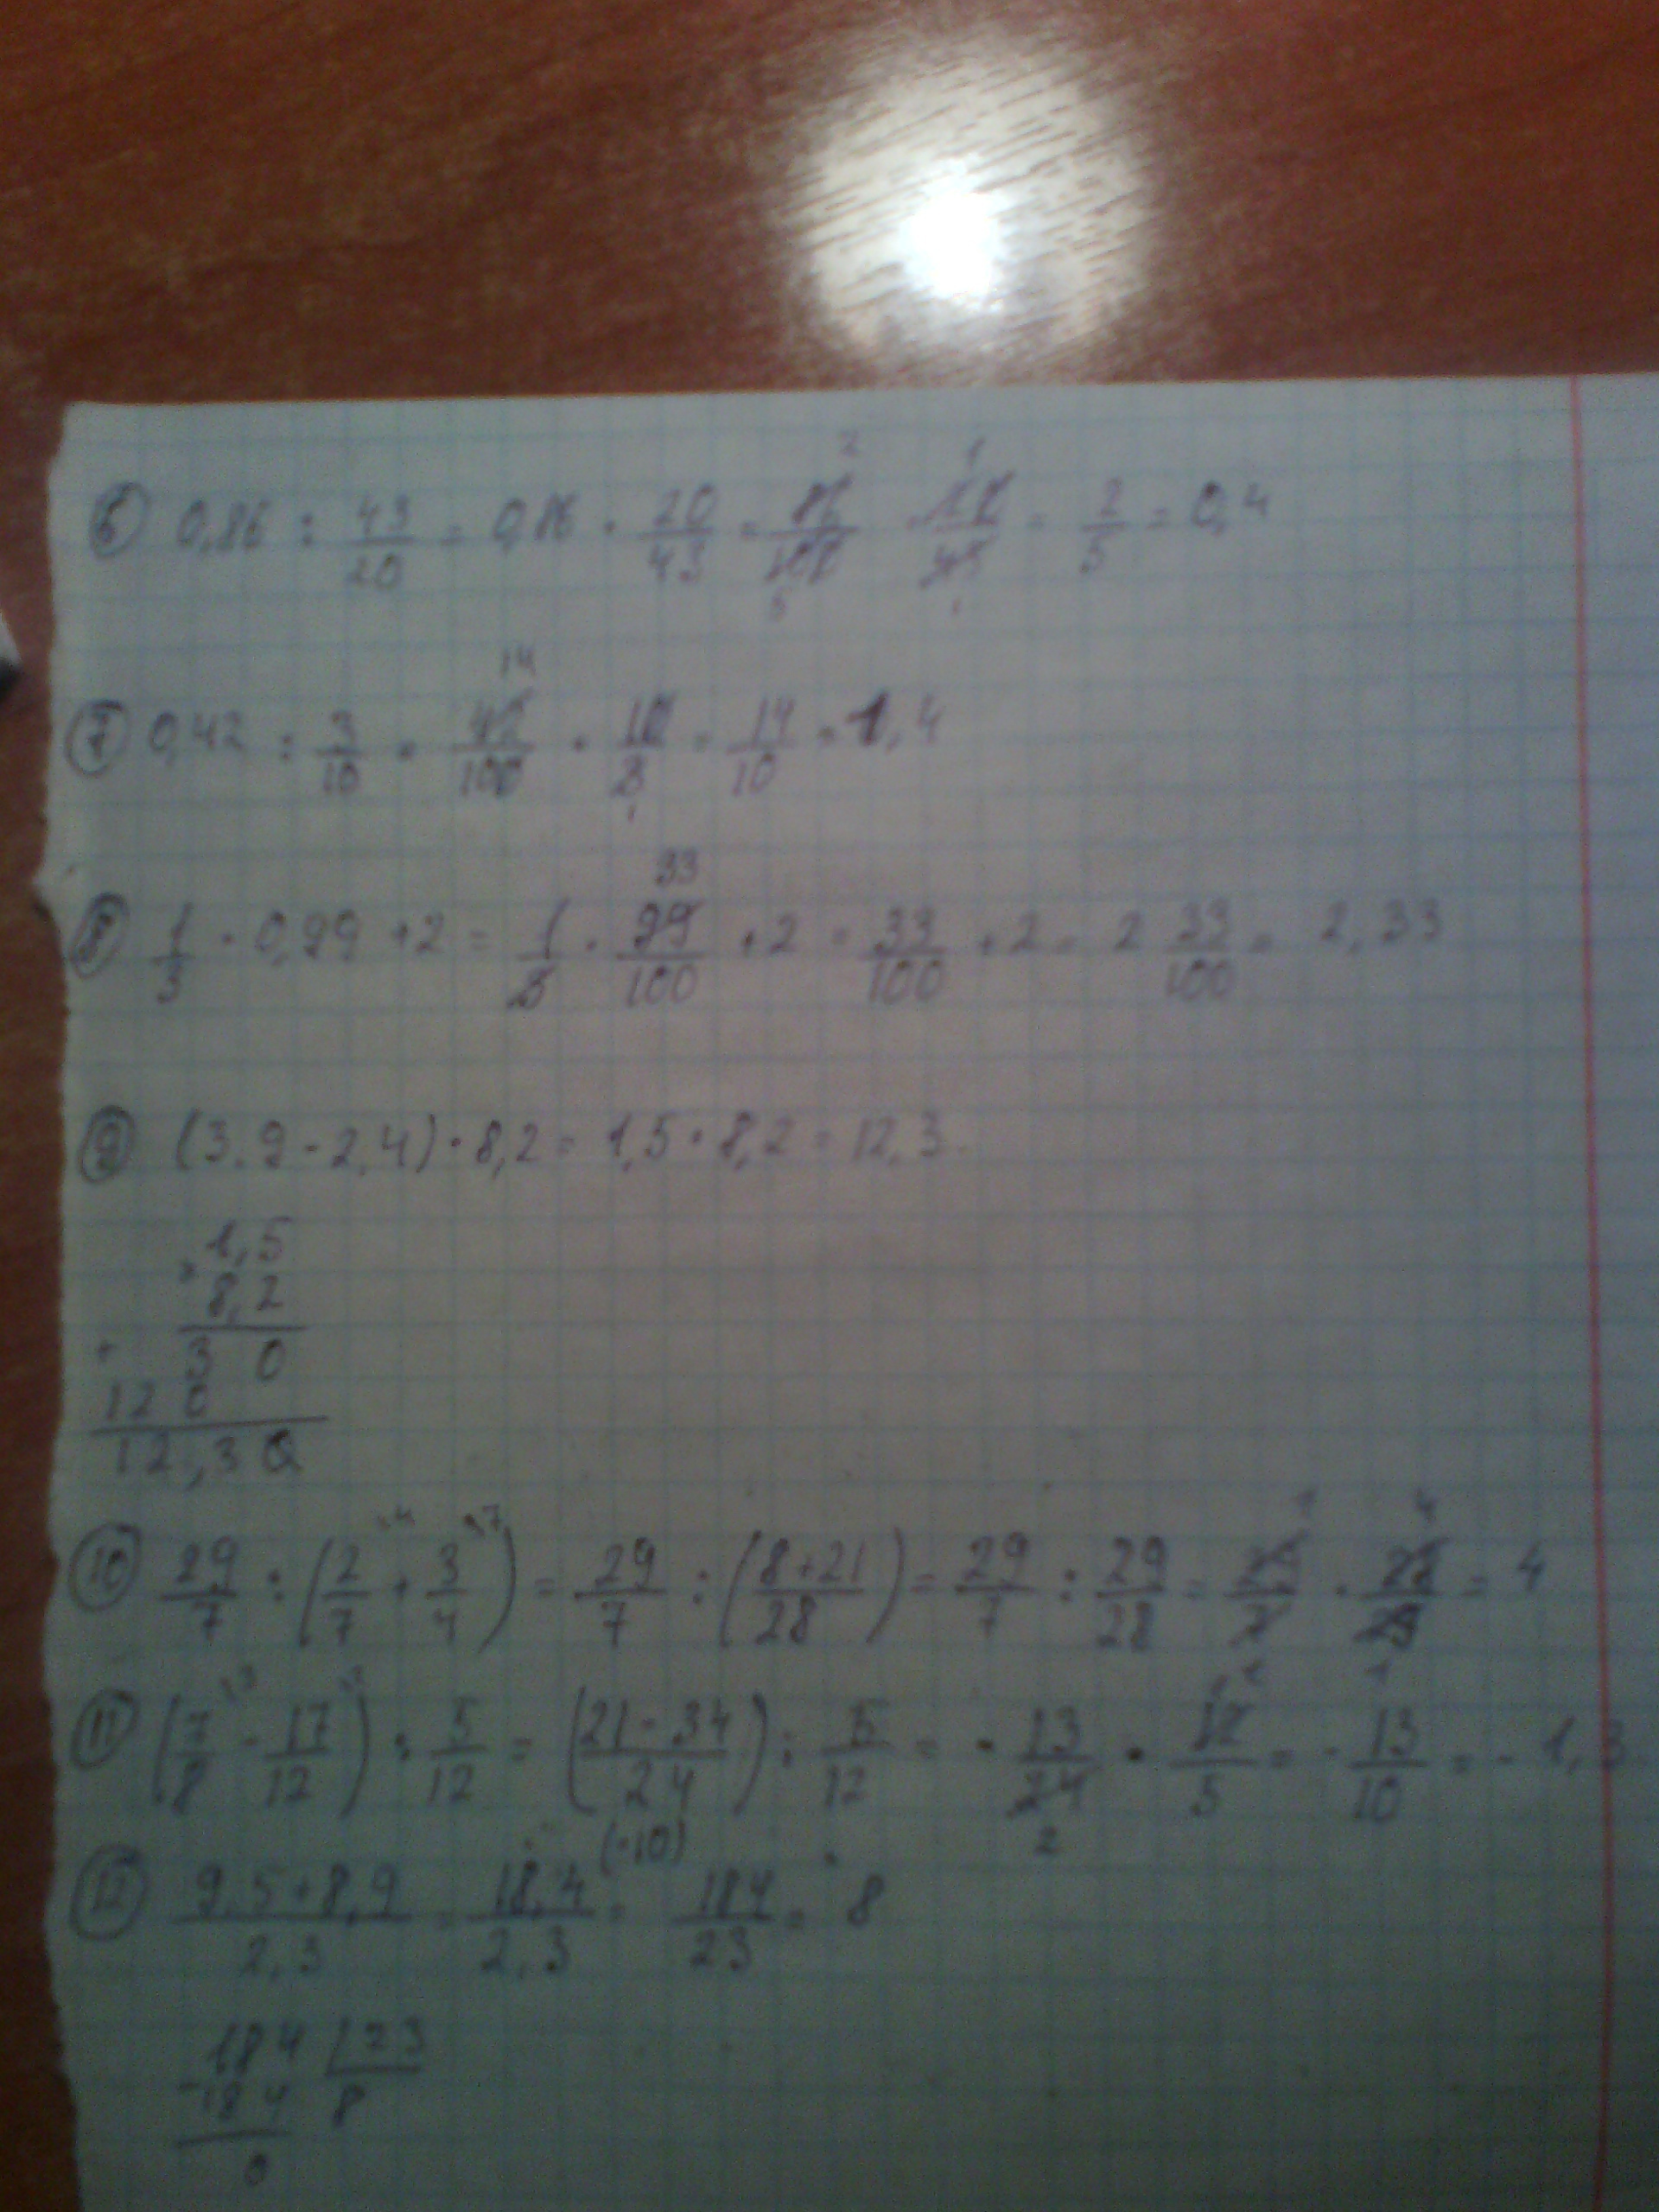 6) 0,86 : 43/20 = 0,86 · 20/43 = 86/100 · 20/43 = 2/5 = 0,4
7) 0,42 : 3/10 = 42/100 · 10/3 = 14/10 = 1,4
8) 1/3 · 0,99 + 2 = 1/3 · 99/100 + 2 = 33/100 + 2 = 2 33/100 = 2,33
9) (3,9 - 2,4) · 8,2 = 1,5 · 8,2 = 12,3
× 1,5
8,2
+ 3 0
12 0
12,30
10) 29/7 : (2/7 + 3/4) = 29/7 : (8+21/28) = 29/7 : 29/28 = 29/7 · 28/29 = 4
11) (7/8 - 17/12) : 5/12 = (21-34/24) : 5/12 = - 13/24 · 12/5 = - 13/10 = - 1,3
12) 9,5+8,9/2,3 = 18,4/2,3 (·10) = 184/23 = 8
184 | 23
-184 8
0